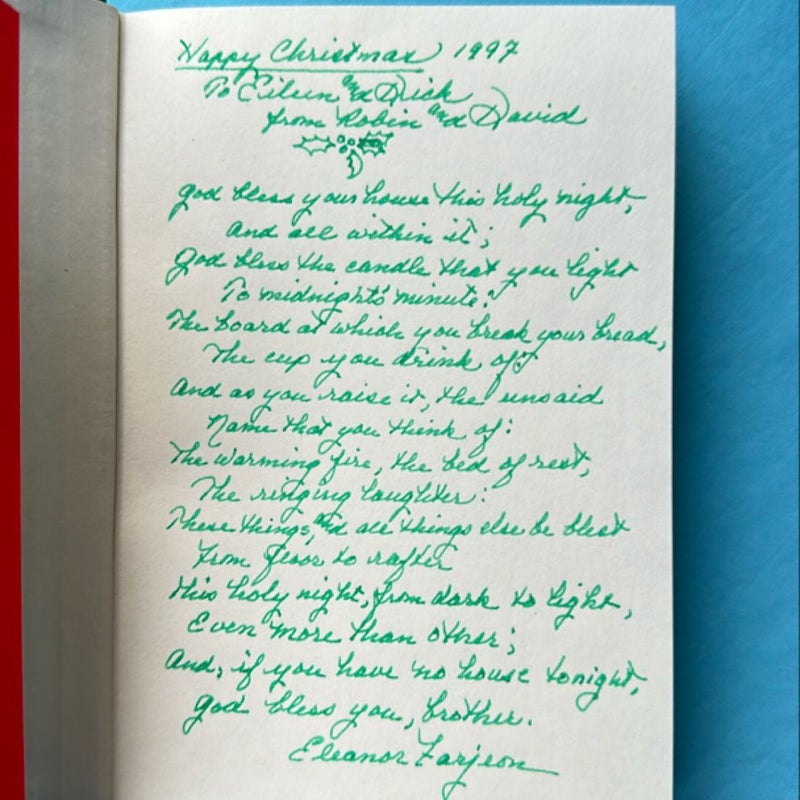 Happy Christmas 1997
To Eileen and Dick
from Robin and David
God bless your house this holy night,
And all within it;
God bless the candle that you light
To midnight's minute:
The board at which you break your bread,
The cup you drink of:
And as you raise it, the unsaid
Name that you think of:
The warming fire, the bed of rest,
The ringing laughter:
These things, and all things else be blest
From floor to rafter
This holy night, from dark to light,
Even more than other;
And, if you have no house tonight,
God bless you, brother.
Eleanor Farjeon